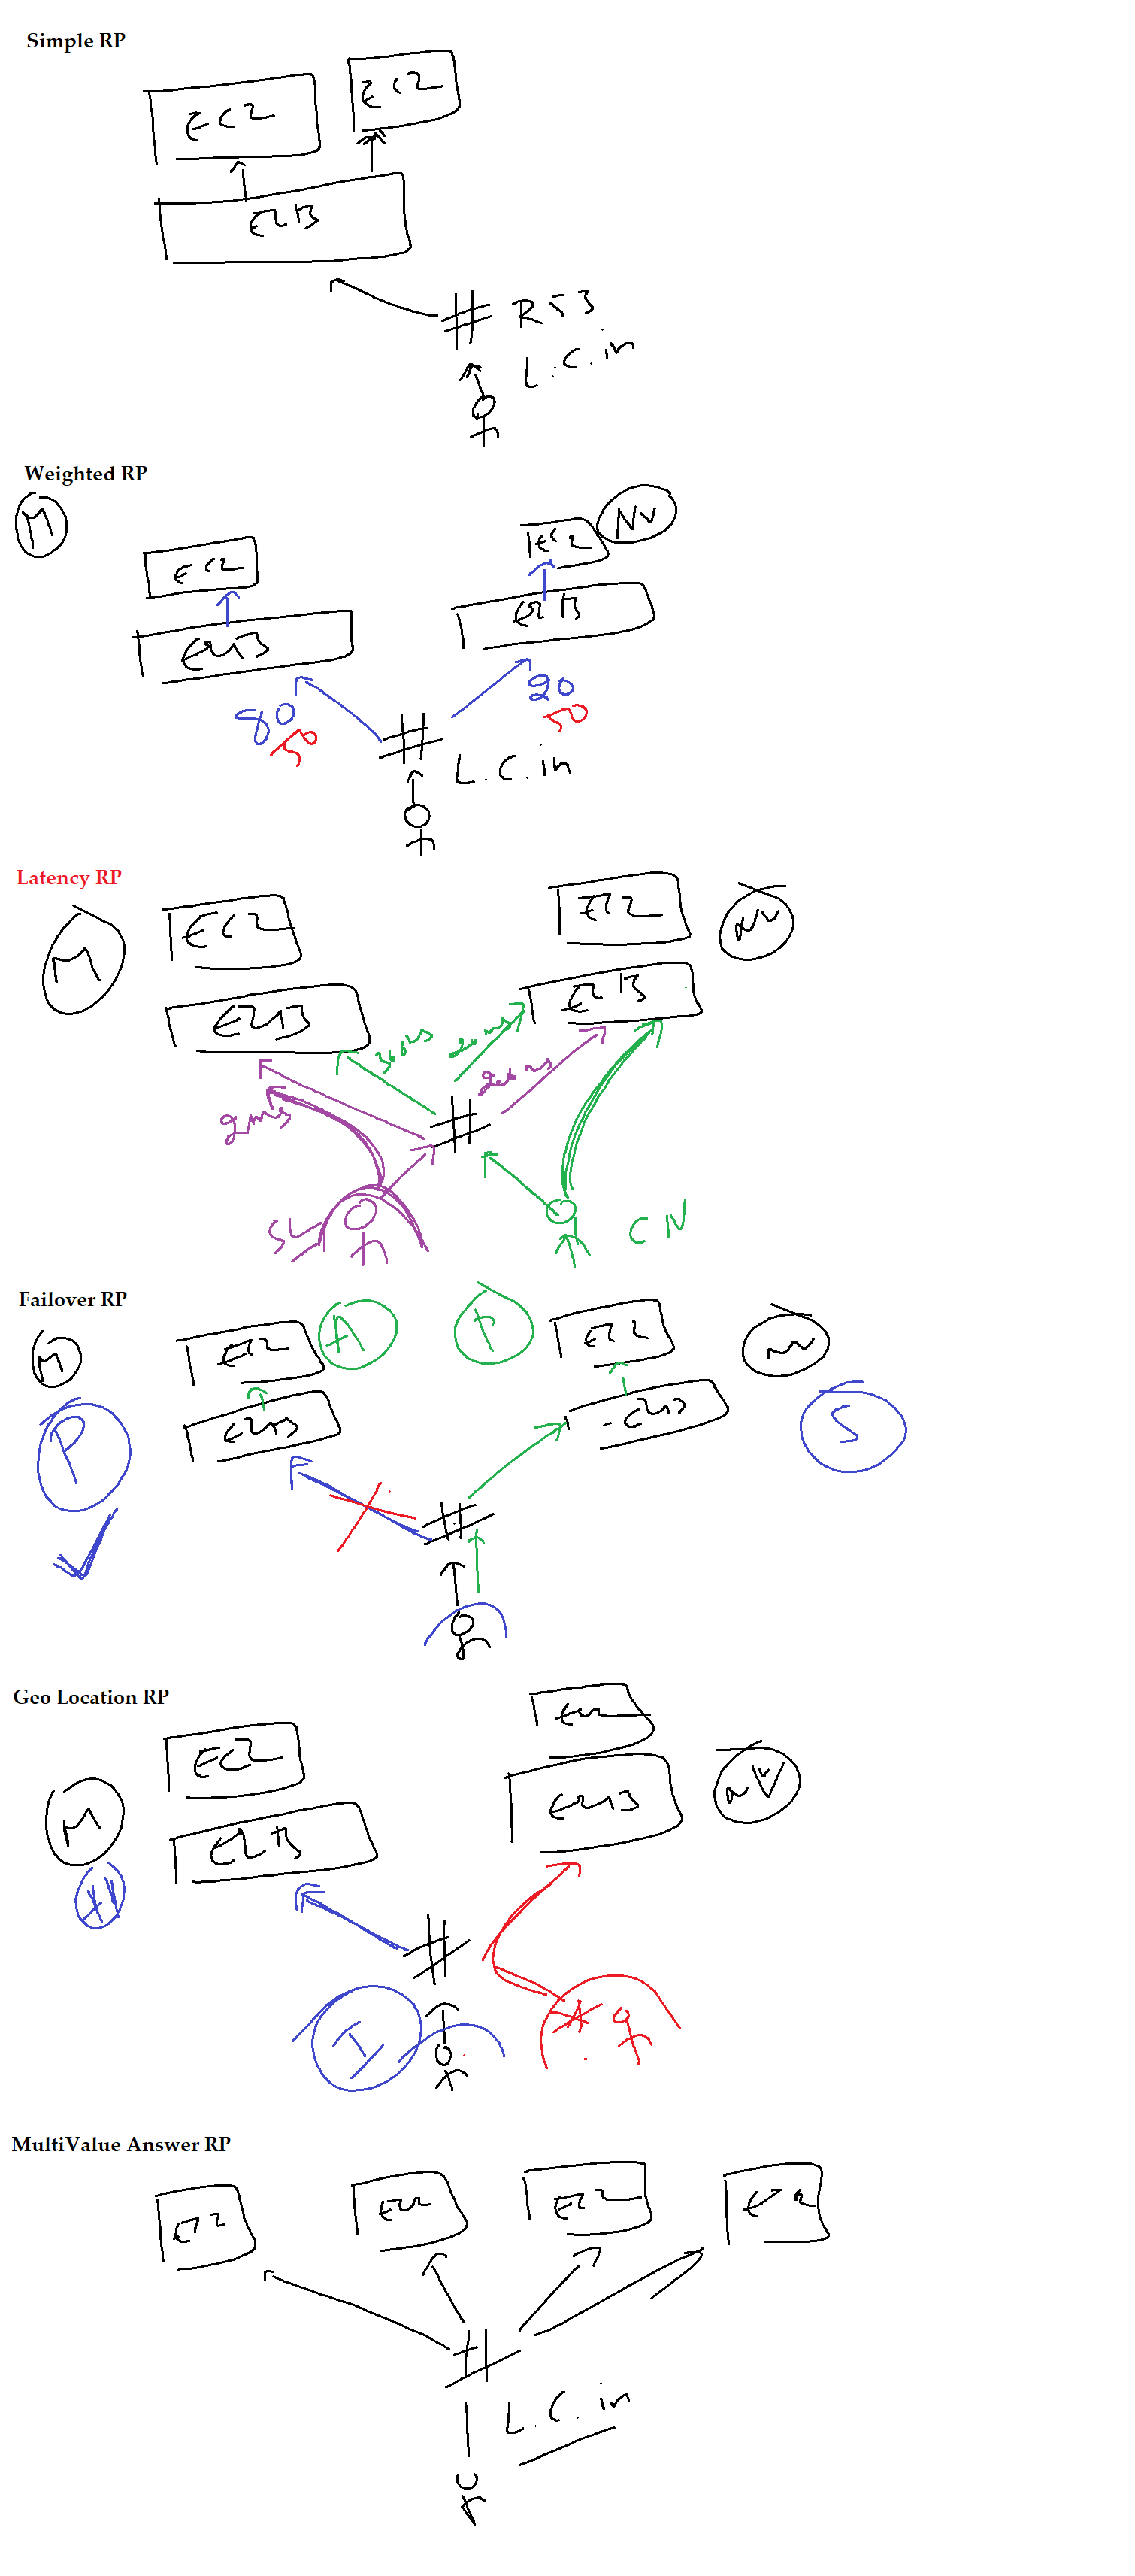 Simple RP
EC2 EC2
ELB
R53
L.C.in
Weighted RP
M NV
EC2 EC2
ELB ELB
80 20
50 50
L.C.in
Latency RP
M NV
EC2 EC2
ELB ELB
300ms 20ms
200ms
2ms
SL CN
Failover RP
M A P NV
EC2 EC2
ELB ELB
P S
Geo Location RP
EC2 EC2
M NV
ELB ELB
I
MultiValue Answer RP
EC2 EC2 EC2 EC2
L.C.in